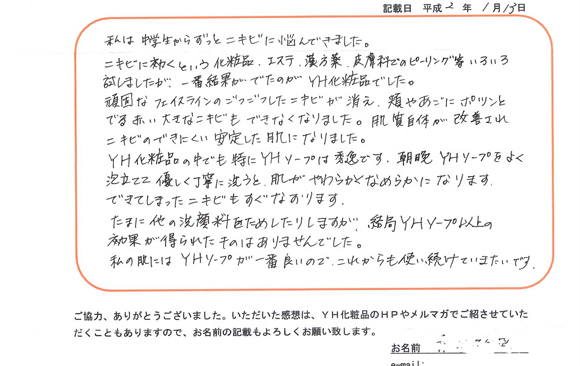 記載日 平成 2 年 1月13日
私は中学生からずっとニキビに悩んできました。
ニキビに効くという化粧品、エステ、漢方薬、皮膚科でのピーリング等いろいろ
試しましたが、一番結果がでたのがYH化粧品でした。
頑固なフェイスラインのゴツゴツしたニキビが消え、頬やあごにポツンと
でる赤い大きなニキビもできなくなりました。肌質自体が改善され
ニキビのできにくい安定した肌になりました。
YH化粧品の中でも特にYHソープは秀逸です。朝晩YHソープをよく
泡立てて優しく丁寧に洗うと、肌がやわらかくなめらかになります。
できてしまったニキビもすぐなおります。
たまに他の洗顔料をためしたりしますが、結局YHソープ以上の
効果が得られたものはありませんでした。
私の肌にはYHソープが一番良いので、これからも使い続けていきたいです。
ご協力、ありがとうございました。いただいた感想は、YH化粧品のHPやメルマガでご紹させていた
だくこともありますので、お名前の記載もよろしくお願い致します。
お名前
e-mail: